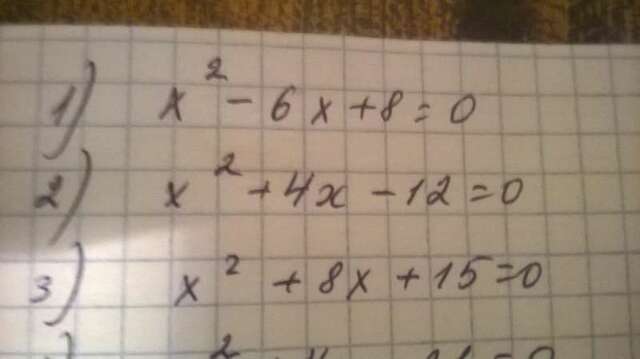 1) x² - 6x + 8 = 0
2) x² + 4x - 12 = 0
3) x² + 8x + 15 = 0